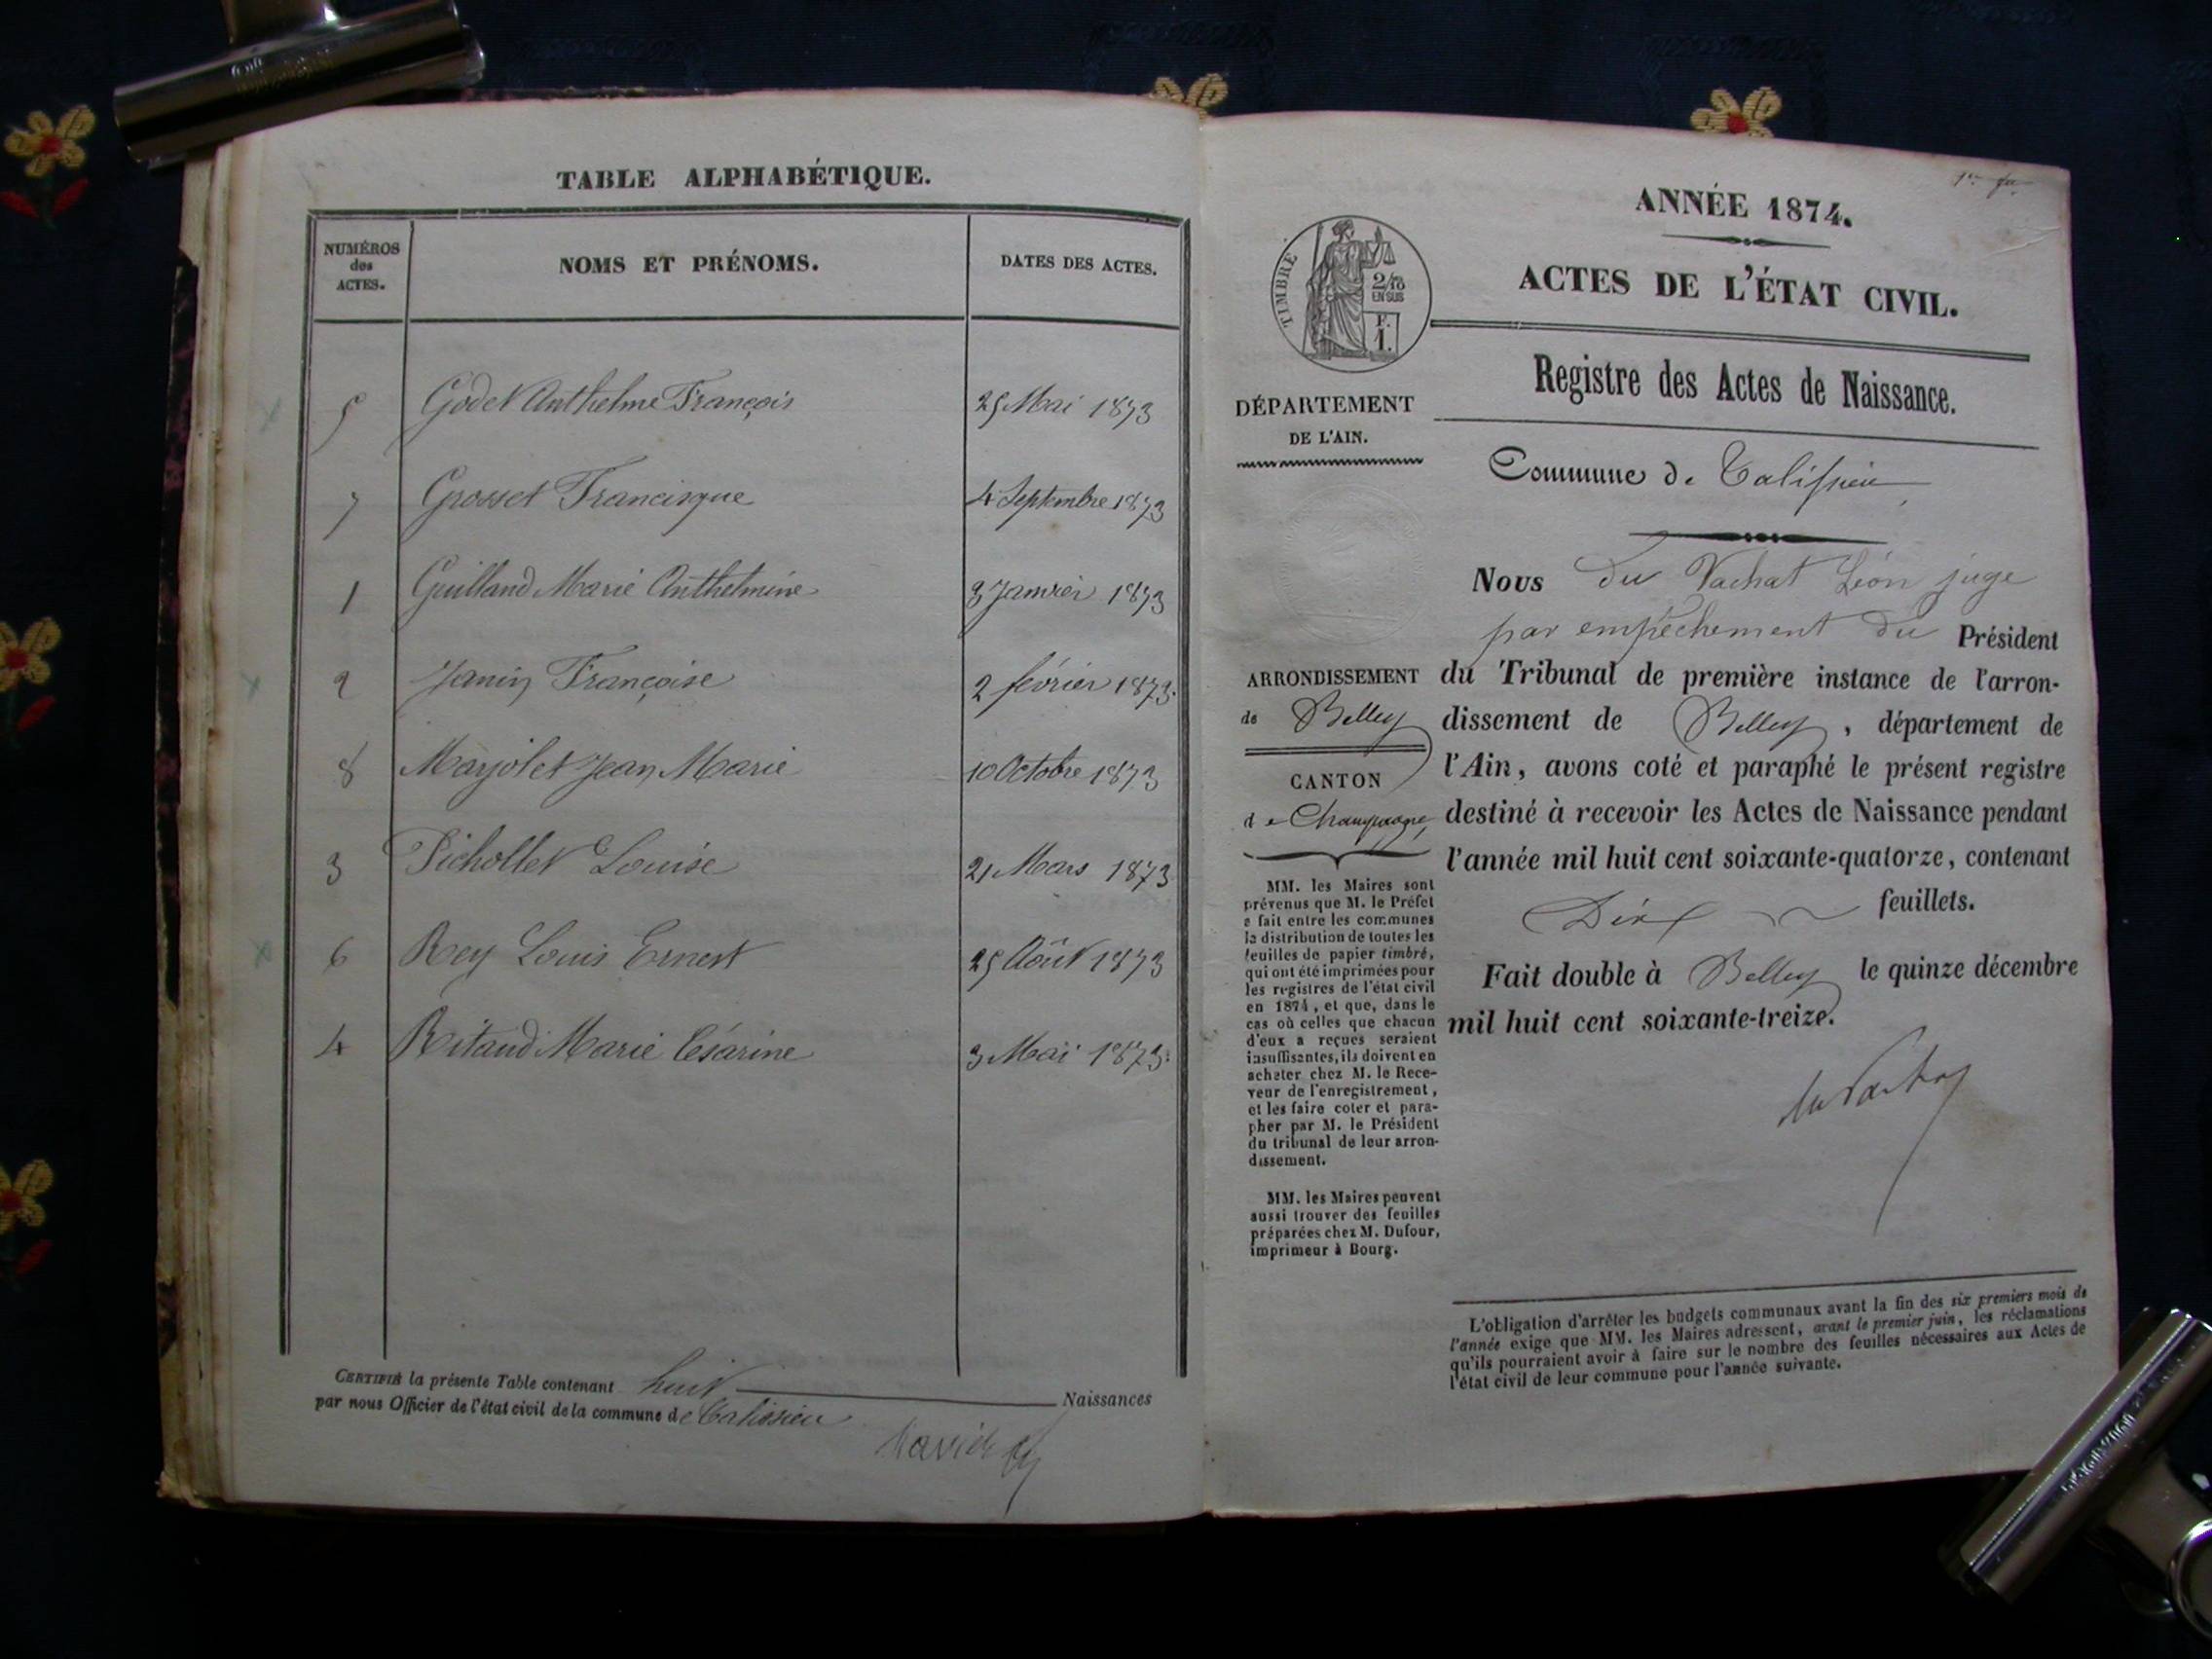 TABLE ALPHABÉTIQUE.
NUMÉROS
des
ACTES.
NOMS ET PRÉNOMS.
DATES DES ACTES.
5 Godet Anthelme François 25 Mai 1873
7 Grosset Francisque 4 Septembre 1873
1 Guilland Marie Anthelmine 3 Janvier 1873
2 Janin Françoise 2 février 1873.
8 Marjolet Jean Marie 10 Octobre 1873
3 Pichollet Louise 21 Mars 1873
6 Rey Louis Ernest 25 Août 1873
4 Ritaud Marie Césarine 3 Mai 1873.
CERTIFIÉ la présente Table contenant huit Naissances
par nous Officier de l'état civil de la commune de Talissieu
ANNÉE 1874.
TIMBRE
2/10
EN SUS
F.
1.
ACTES DE L'ÉTAT CIVIL.
Registre des Actes de Naissance.
DÉPARTEMENT
DE L'AIN.
Commune de Talissieu
Nous du Vachat Léon juge
par empêchement du Président
du Tribunal de première instance de l'arron-
dissement de Belley, département de
l'Ain, avons coté et paraphé le présent registre
destiné à recevoir les Actes de Naissance pendant
l'année mil huit cent soixante-quatorze, contenant
Dix feuillets.
Fait double à Belley le quinze décembre
mil huit cent soixante-treize.
du Vachat
ARRONDISSEMENT
de Belley
CANTON
de Champagne
MM. les Maires sont
prévenus que M. le Préfet
a fait entre les communes
la distribution de toutes les
feuilles de papier timbré,
qui ont été imprimées pour
les registres de l'état civil
en 1874, et que, dans le
cas où celles que chacun
d'eux a reçues seraient
insuffisantes, ils doivent en
acheter chez M. le Rece-
veur de l'enregistrement,
et les faire coter et para-
pher par M. le Président
du tribunal de leur arron-
dissement.
MM. les Maires peuvent
aussi trouver des feuilles
préparées chez M. Dufour,
imprimeur à Bourg.
L'obligation d'arrêter les budgets communaux avant la fin des six premiers mois de
l'année exige que MM. les Maires adressent, avant le premier juin, les réclamations
qu'ils pourraient avoir à faire sur le nombre des feuilles nécessaires aux Actes de
l'état civil de leur commune pour l'année suivante.